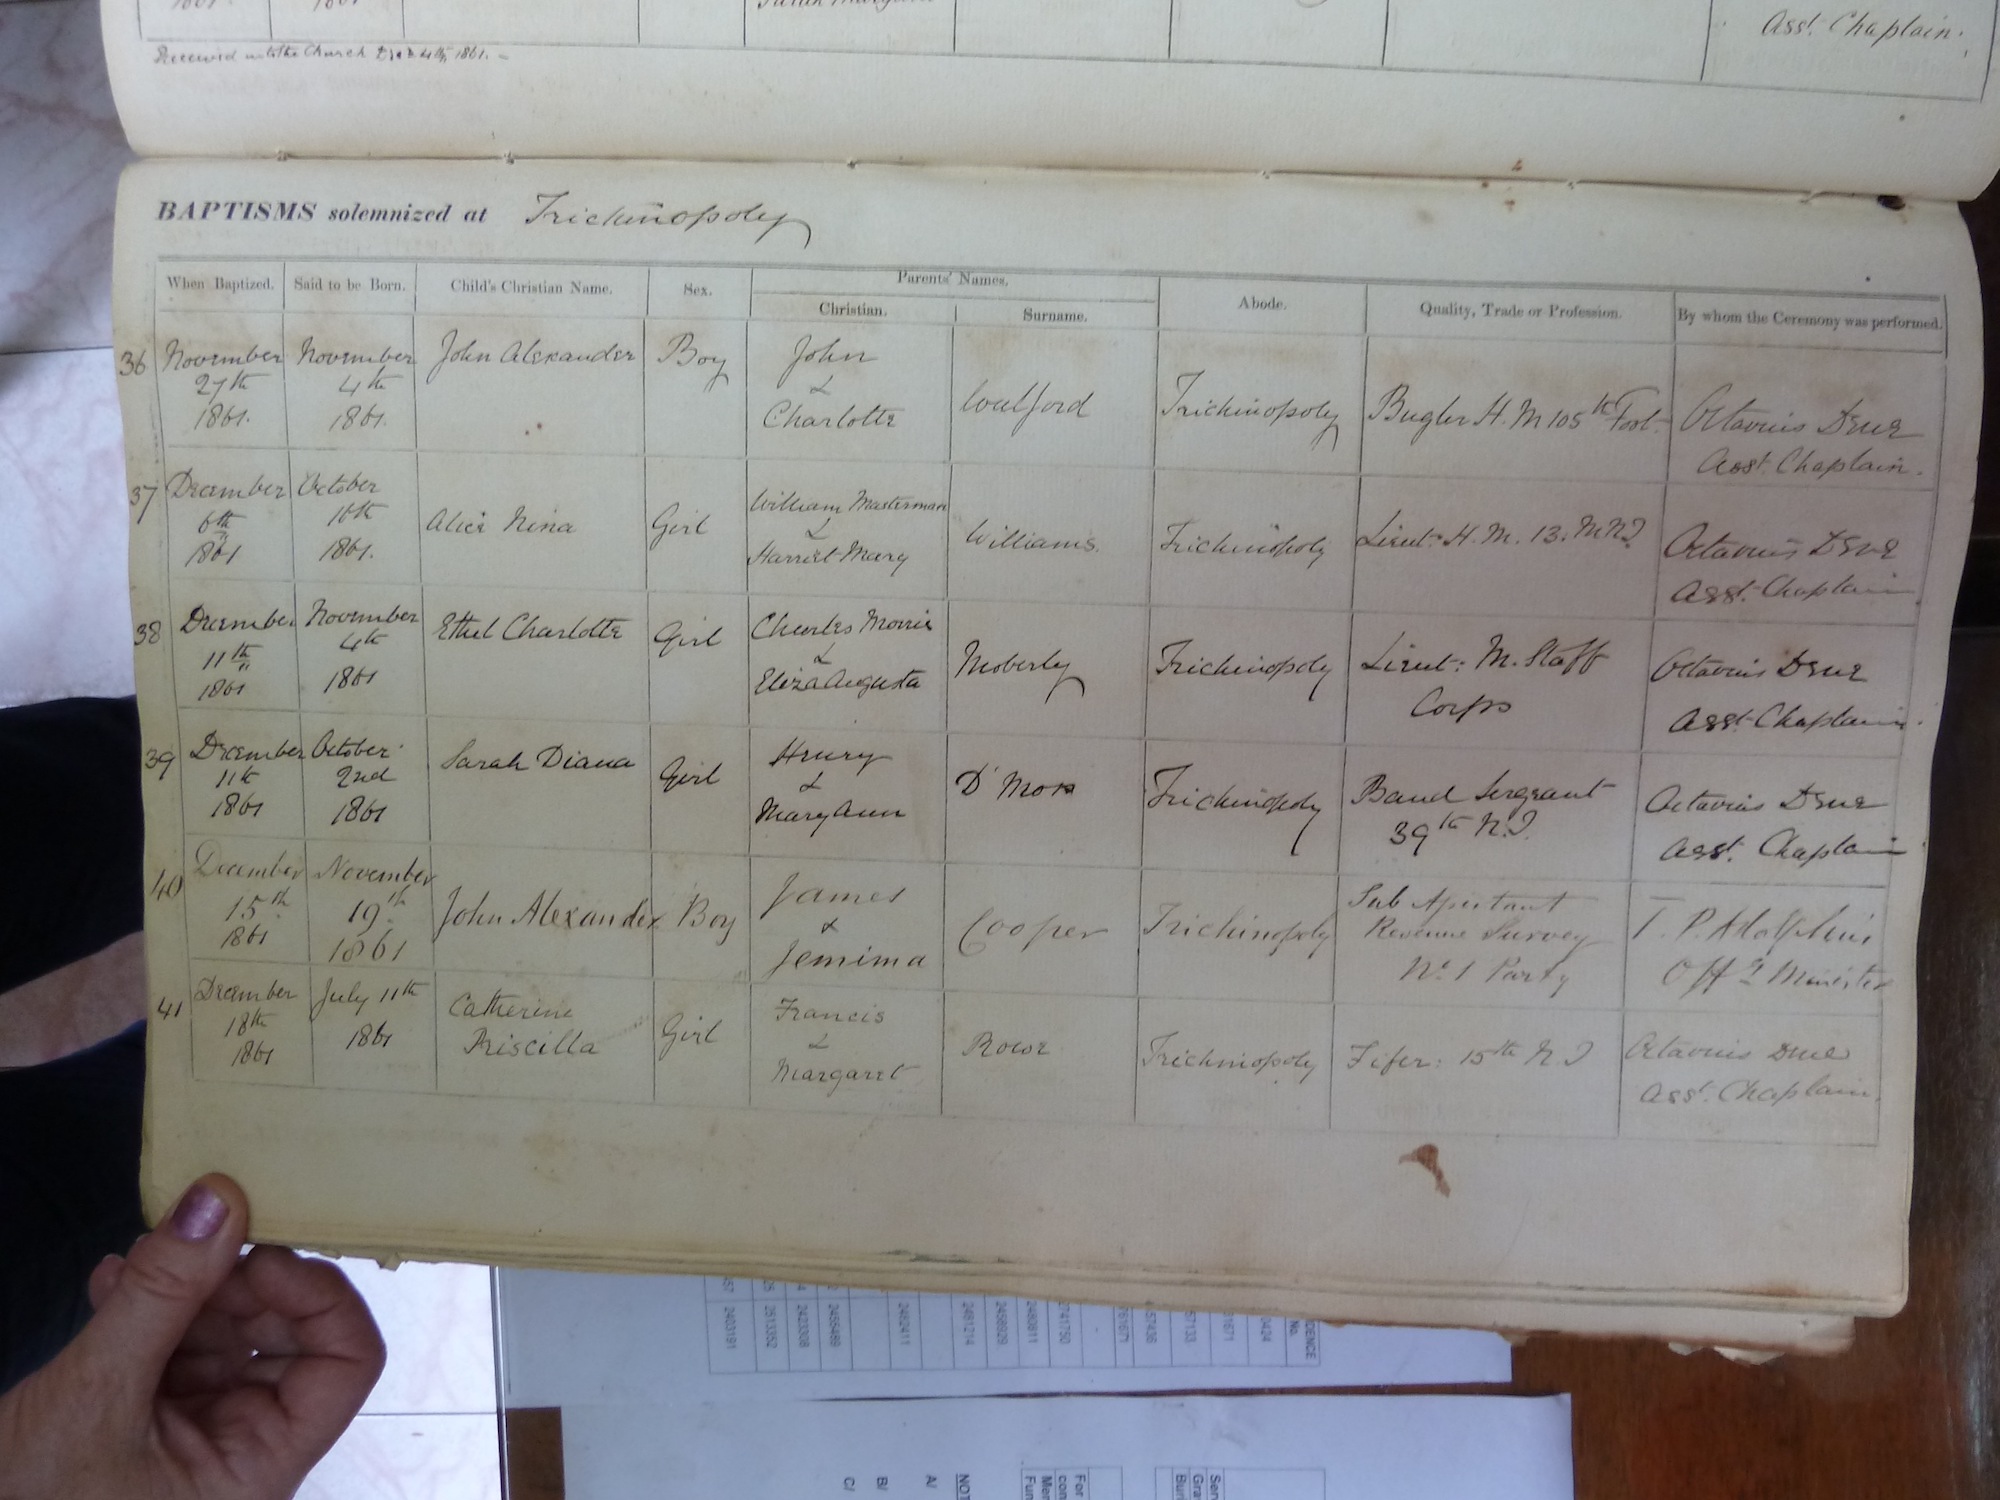 Asst. Chaplain.
Received into the Church Decr 4th, 1861. –
BAPTISMS solemnized at Trichinopoly
When Baptized. Said to be Born. Child's Christian Name. Sex. Parents' Names. Abode. Quality, Trade or Profession. By whom the Ceremony was performed.
Christian. Surname.
36 November 27th 1861. November 4th 1861. John Alexander Boy John & Charlotte Walford Trichinopoly Bugler H. M 105th Foot. Octavius Dene Asst. Chaplain.
37 December 6th 1861 October 10th 1861. Alice Nina Girl William Masterman & Harriet Mary Williams. Trichinopoly Lieut: H. M. 13. M N I Octavius Dene Asst. Chaplain
38 December 11th 1861 November 4th 1861 Ethel Charlotte Girl Charles Morris & Eliza Augusta Moberly Trichinopoly Lieut: M. Staff Corps Octavius Dene Asst. Chaplain
39 December 11th 1861 October 2nd 1861 Sarah Diana Girl Henry & Mary Ann D'Mon Trichinopoly Band Sergeant 39th N. I. Octavius Dene Asst. Chaplain
40 December 15th 1861 November 19th 1861 John Alexander Boy James & Jemima Cooper Trichinopoly Sub Assistant Revenue Survey No. 1 Party T. P. Adolphus Offg Minister
41 December 18th 1861 July 11th 1861 Catherine Priscilla Girl Francis & Margaret Rowe Trichinopoly Fifer: 15th N I Octavius Dene Asst. Chaplain.
2403191
2513352
2423308
2455489
2462411
2461214
2458929
2480811
NOT
A/
B/
C/